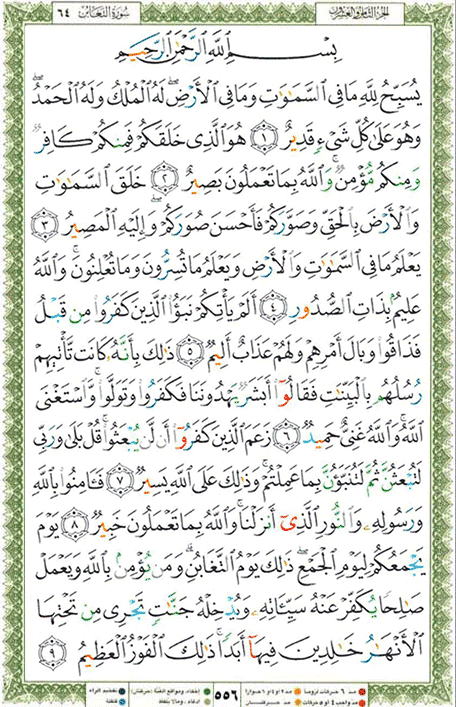 الجزء الثامن والعشرون
سورة التغابن ٦٤
بِسْمِ اللَّهِ الرَّحْمَٰنِ الرَّحِيمِ
يُسَبِّحُ لِلَّهِ مَا فِي السَّمَٰوَٰتِ وَمَا فِي الْأَرْضِ ۖ لَهُ الْمُلْكُ وَلَهُ الْحَمْدُ ۖ
وَهُوَ عَلَىٰ كُلِّ شَيْءٍ قَدِيرٌ ١ هُوَ الَّذِي خَلَقَكُمْ فَمِنكُمْ كَافِرٌ
وَمِنكُم مُّؤْمِنٌ ۚ وَاللَّهُ بِمَا تَعْمَلُونَ بَصِيرٌ ٢ خَلَقَ السَّمَٰوَٰتِ
وَالْأَرْضَ بِالْحَقِّ وَصَوَّرَكُمْ فَأَحْسَنَ صُوَرَكُمْ ۖ وَإِلَيْهِ الْمَصِيرُ ٣
يَعْلَمُ مَا فِي السَّمَٰوَٰتِ وَالْأَرْضِ وَيَعْلَمُ مَا تُسِرُّونَ وَمَا تُعْلِنُونَ ۚ وَاللَّهُ
عَلِيمٌ بِذَاتِ الصُّدُورِ ٤ أَلَمْ يَأْتِكُمْ نَبَؤُا الَّذِينَ كَفَرُوا مِن قَبْلُ
فَذَاقُوا وَبَالَ أَمْرِهِمْ وَلَهُمْ عَذَابٌ أَلِيمٌ ٥ ذَٰلِكَ بِأَنَّهُ كَانَت تَّأْتِيهِمْ
رُسُلُهُم بِالْبَيِّنَٰتِ فَقَالُوا أَبَشَرٌ يَهْدُونَنَا فَكَفَرُوا وَتَوَلَّوا ۚ وَّاسْتَغْنَى
اللَّهُ ۚ وَاللَّهُ غَنِيٌّ حَمِيدٌ ٦ زَعَمَ الَّذِينَ كَفَرُوا أَن لَّن يُبْعَثُوا ۚ قُلْ بَلَىٰ وَرَبِّي
لَتُبْعَثُنَّ ثُمَّ لَتُنَبَّؤُنَّ بِمَا عَمِلْتُمْ ۚ وَذَٰلِكَ عَلَى اللَّهِ يَسِيرٌ ٧ فَـَٔامِنُوا بِاللَّهِ
وَرَسُولِهِ وَالنُّورِ الَّذِي أَنزَلْنَا ۚ وَاللَّهُ بِمَا تَعْمَلُونَ خَبِيرٌ ٨ يَوْمَ
يَجْمَعُكُمْ لِيَوْمِ الْجَمْعِ ۖ ذَٰلِكَ يَوْمُ التَّغَابُنِ ۗ وَمَن يُؤْمِنۢ بِاللَّهِ وَيَعْمَلْ
صَٰلِحًا يُكَفِّرْ عَنْهُ سَيِّـَٔاتِهِ وَيُدْخِلْهُ جَنَّٰتٍ تَجْرِي مِن تَحْتِهَا
الْأَنْهَٰرُ خَٰلِدِينَ فِيهَا أَبَدًا ۚ ذَٰلِكَ الْفَوْزُ الْعَظِيمُ ٩
٥٥٦